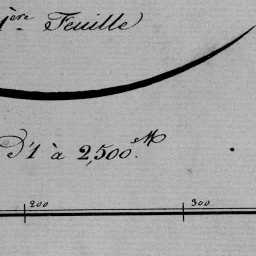 1ère Feuille
D'1 à 2,500.M
200 300